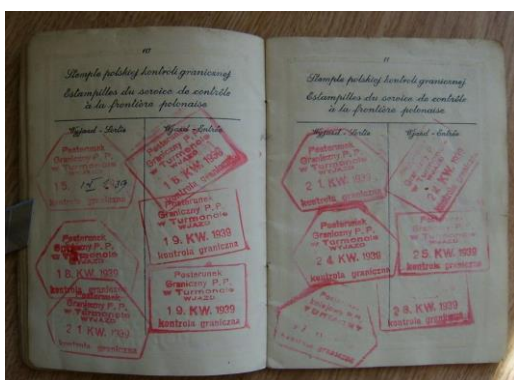 10
Stemple polskiej kontroli granicznej
Estampilles du service de contrôle
à la frontière polonaise
Wyjazd - Sortie
Wjazd - Entrée
Posterunek
Graniczny P. P.
w Turmoncie
15.
kontrola graniczna
Posterunek
Graniczny P. P.
w Turmoncie
WYJAZD
18. KW. 1939
kontrola graniczna
Posterunek
Graniczny P. P.
w Turmoncie
WYJAZD
21 KW. 1939
kontrola graniczna
Posterunek
Graniczny P. P.
w Turmoncie
KW. 1939
kontrola graniczna
Posterunek
Graniczny P. P.
w Turmoncie
WJAZD
19. KW. 1939
kontrola graniczna
Posterunek
Graniczny P. P.
w Turmoncie
WJAZD
19. KW. 1939
kontrola graniczna
11
Stemple polskiej kontroli granicznej
Estampilles du service de contrôle
à la frontière polonaise
Wyjazd - Sortie
Wjazd - Entrée
Posterunek
Graniczny P. P.
w Turmoncie
21. KW. 1939
kontrola graniczna
Posterunek
Graniczny P. P.
w Turmoncie
24. KW. 1939
kontrola graniczna
Posterunek
kontrola graniczna
22. KW. 1939
25. KW. 1939
kontrola graniczna
KW. 1939
kontrola graniczna